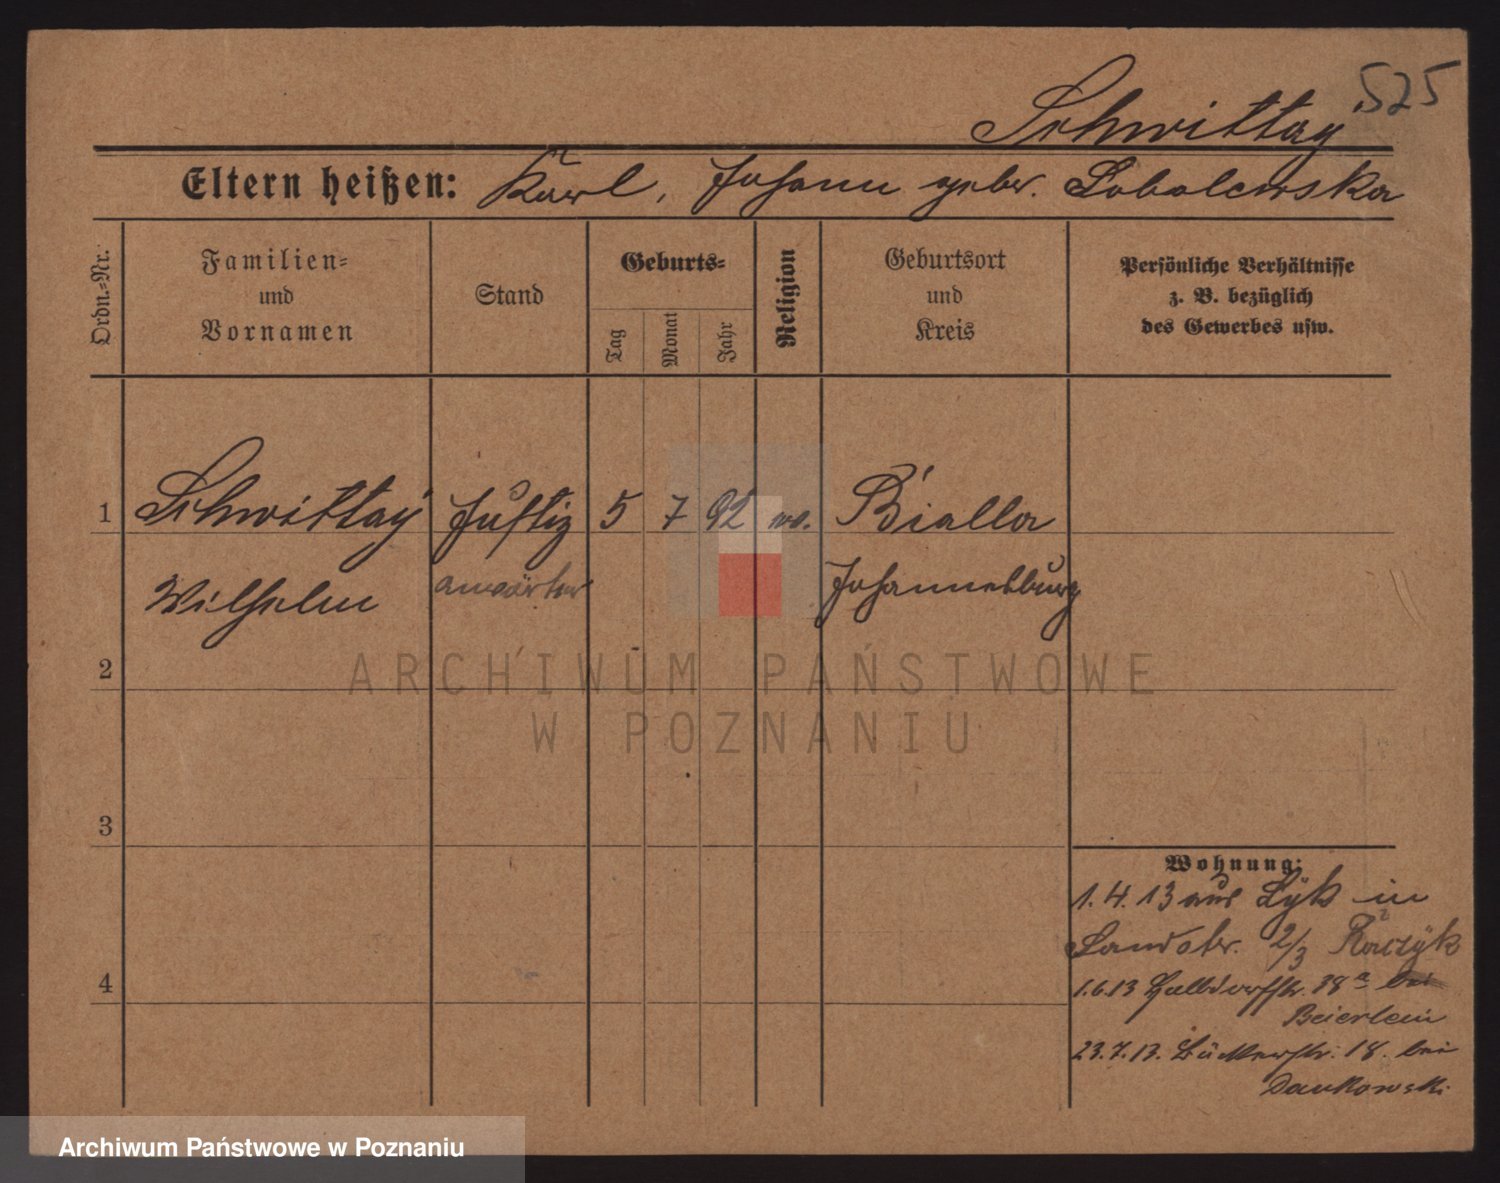 525
Schwittay
Eltern heißen: Karl, Johann geb. Sobolewska
Ordn.-Nr.
Familien-
und
Vornamen
Stand
Geburts-
Tag
Monat
Jahr
Religion
Geburtsort
und
Kreis
Persönliche Verhältnisse
z. B. bezüglich
des Gewerbes usw.
1 Schwittay Justiz 5 7 92 ev. Bialla
Wilhelm anwärter Johannesburg
2
3
4
Wohnung:
1.4.13 aus Lyk in
Landstr. 2/3
1.6.13 Halbdorfstr. 38a bei
Beierlein
23.7.13. Bäckerstr. 18. bei
Dankowski
ARCHIWUM PAŃSTWOWE
W POZNANIU
Archiwum Państwowe w Poznaniu